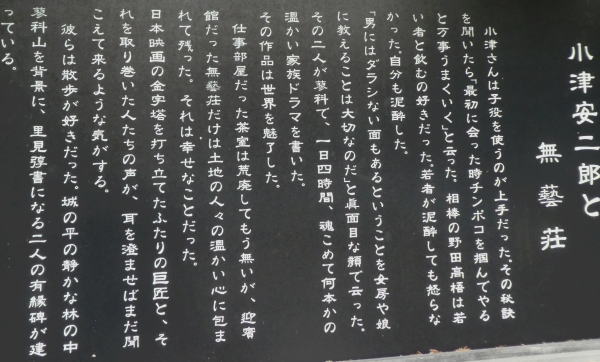 小津安二郎と
無藝荘
小津さんは子役を使うのが上手だった。その秘訣
を聞いたら「最初に会った時チンポコを掴んでやる
と万事うまくいく」と云った。相棒の野田高梧は若
い者と飲むの好きだった。若者が泥酔しても怒らな
かった。自分も泥酔した。
「男にはダラシない面もあるということを女房や娘
に教えることは大切なのだ」と眞面目な顔で云った。
その二人が蓼科で、一日四時間、魂こめて何本かの
温かい家族ドラマを書いた。
その作品は世界を魅了した。
仕事部屋だった茶室は荒廃してもう無いが、迎賓
館だった無藝荘だけは土地の人々の温かい心に包ま
れて残った。それは幸せなことだった。
日本映画の金字塔を打ち立てたふたりの巨匠と、そ
れを取り巻いた人たちの声が、耳を澄ませばまだ聞
こえて来るような気がする。
彼らは散歩が好きだった。城の平の静かな林の中
蓼科山を背景に、里見弴書になる二人の有縁碑が建
っている。